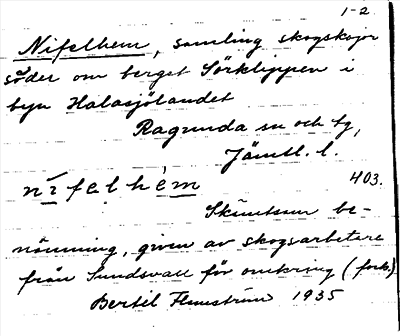 1-2
Nifelhem, samling skogskojor
söder om berget Sörklippen i
byn Halasjölandet
Ragunda sn och tg,
Jämtl. l.
nifelhem 403.
Skämtsam be-
nämning, given av skogsarbetare
från Sundsvall för omkring (forts.)
Bertil Flemström 1935